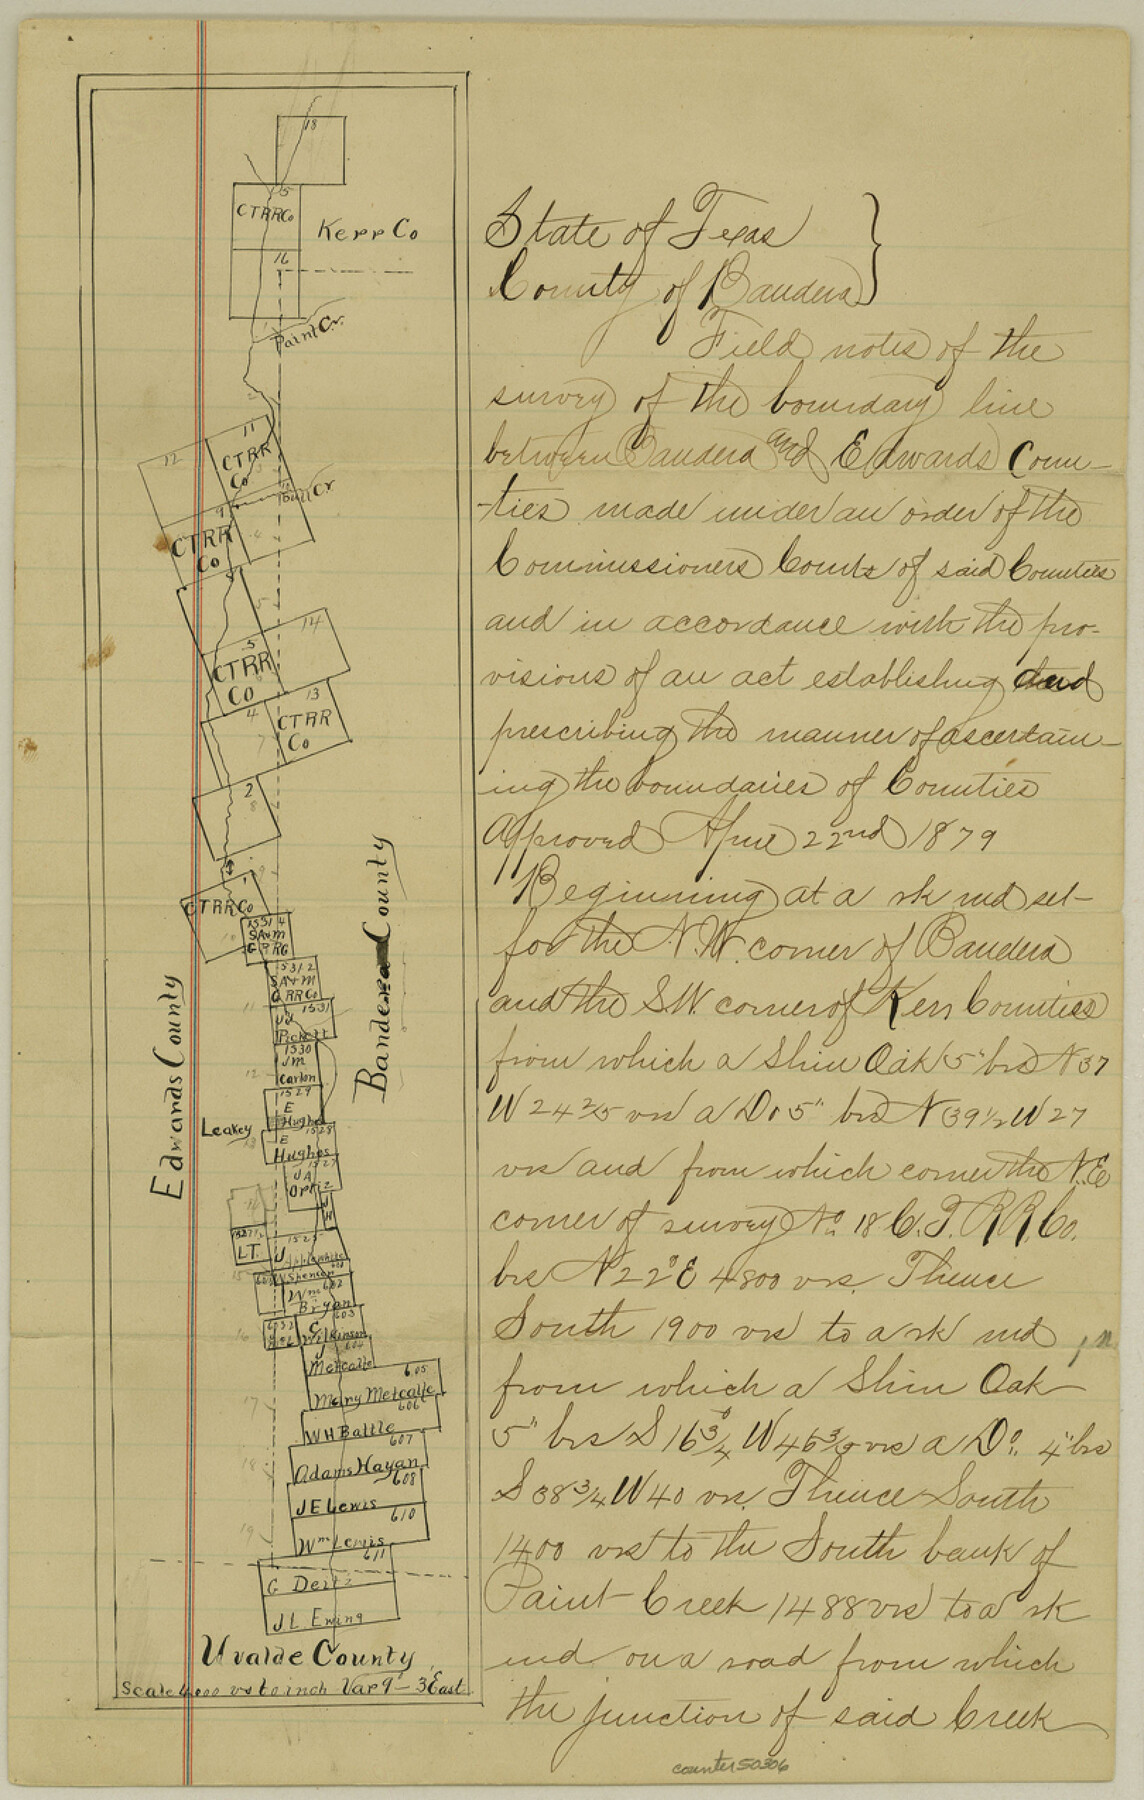 18
5
CTRRCo
Kerr Co
16
Paint Cr.
2
11
12
CTRR
Co
Bull Cr
9
CTRR
Co
5
14
5
CTRR
Co
13
4
CTRR
Co
7
2
8
1
CTRRCo
1531 4
SA&M
G RRG
10
1531 2
SA&M
G RRCo
11
1531
Pickett
1530
JM
Carlon
12
1529
E
Hughes
Leakey
1528
E
Hughes
1527
JA
Opitz
14
LT.
1525
J
15
Spencer
602
Wm
Bryan
603
C
Wilkinson
16
604
J
Metcalfe
605
Mary Metcalfe
606
17
WH Battle
607
Adams Hayan
18
608
J E Lewis
610
19
Wm Lewis
611
G Deitz
J L Ewing
Edwards County
Bandera County
Uvalde County
Scale 4000 vs to inch Var 9° - 3' East
State of Texas
County of Bandera
Field notes of the
survey of the boundary line
between Bandera and Edwards Coun-
-ties made under an order of the
Commissioners Courts of said Counties
and in accordance with the pro-
visions of an act establishing and
prescribing the manner of ascertain-
ing the boundaries of Counties
Approved April 22nd 1879
Beginning at a rk md set
for the N.W. corner of Bandera
and the S.W. corner of Kerr Counties
from which a Shin Oak 5" brs N 37
W 24 2/5 vrs a Do 5" brs N 39 1/2 W 27
vrs and from which corner the N.E
corner of survey No 18 C.T.R.R.Co.
brs N 22° E 4800 vrs. Thence
South 1900 vrs to a rk md
from which a Shin Oak
5" brs S 16 3/4° W 46 3/5 vrs a Do. 4" brs
S 38 3/4 W 40 vrs. Thence South
1400 vrs to the South bank of
Paint Creek 1488 vrs to a rk
md on a road from which
the junction of said Creek
counter 50306